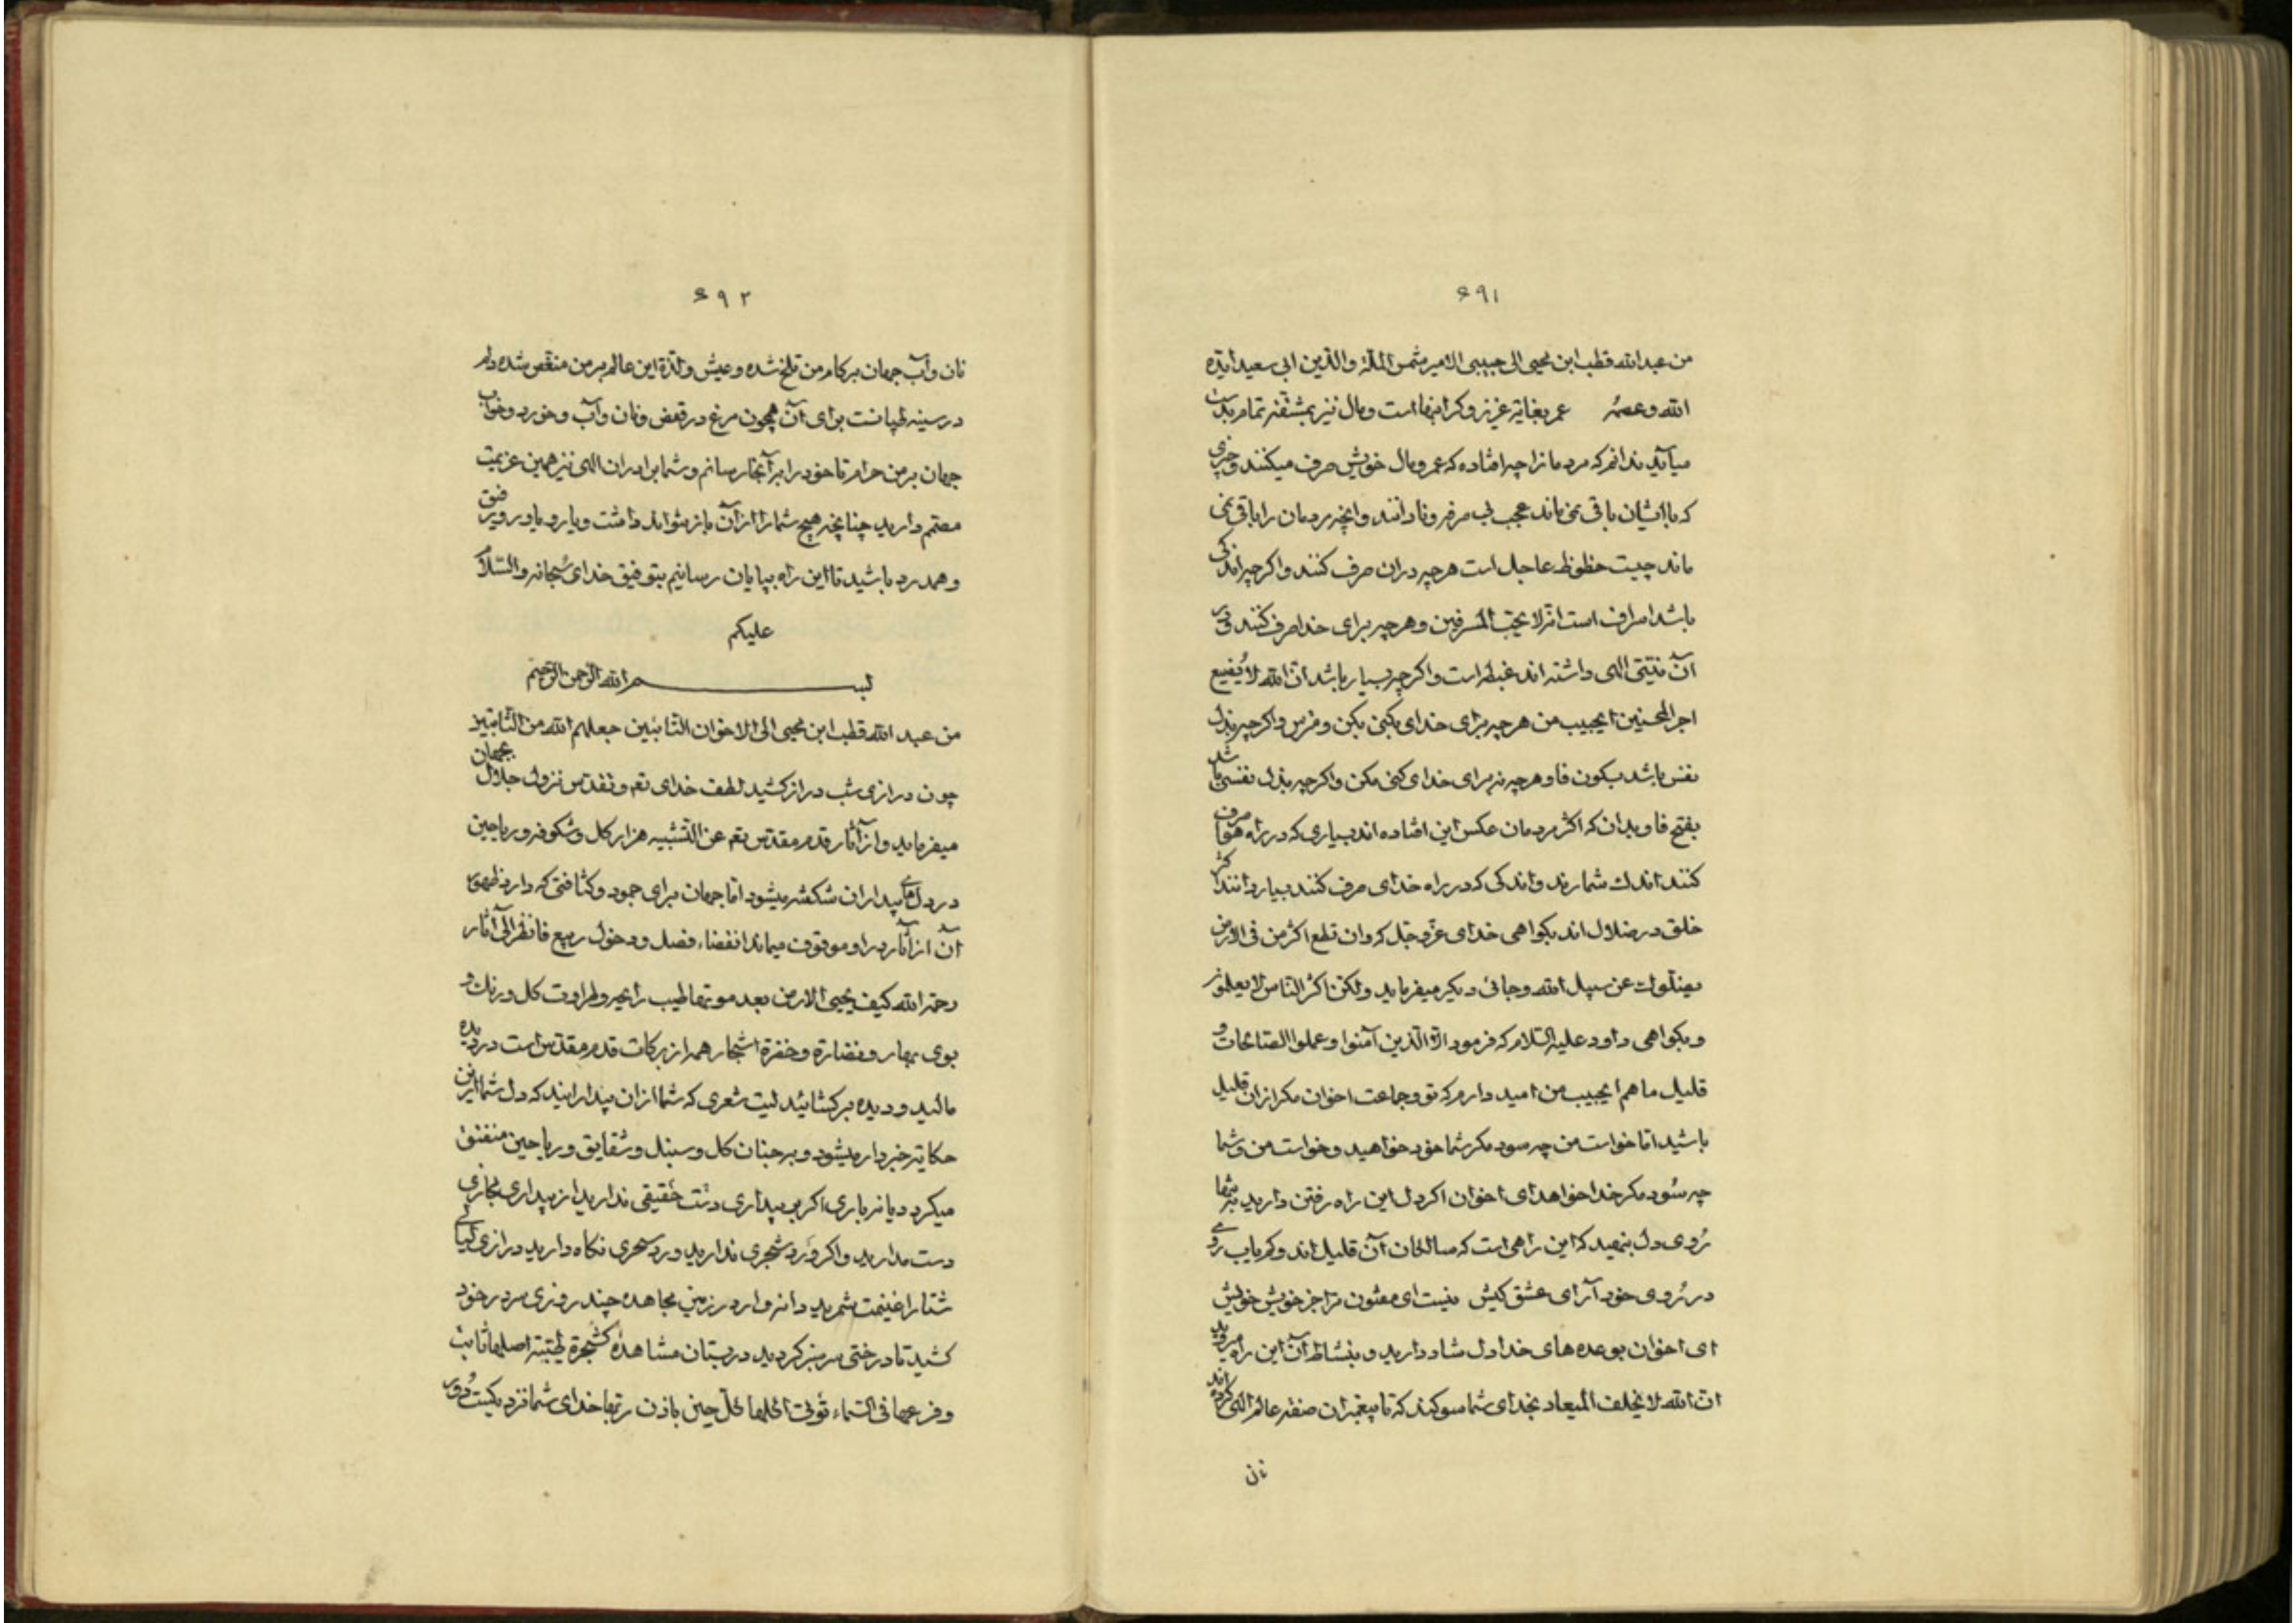 ۶۹۱
من عبدالله قطب ابن محیی الی حبیبی الامیر شمس الملة والدین ابی سعید ایده
الله وعصمه عمر بغایة عزیز و کرانبها است و مال نیز بمشقته تمام بدست
میآید ندانم که مردمانرا چه افتاده که عمر و مال خویش صرف میکنند و چیزی
که باایشان باقی نمی ماند عجب بی صرفه و نادانند وانچه بمردمان را باقی نمی
ماند چیست حظوظ عاجل است هرچه دران صرف کنند واکرچه اندکی
باشد اسراف است انه لا یحب المسرفین وهرچه برای خدا صرف کنند و در
آن نیتی الهی داشته اند غبطه است واکرچه بسیار باشد ان الله لا یضیع
اجر المحسنین ایحبیب من هرچه برای خدای بکنی بکن و مترس واکرچه بذل
نفس باشد بسکون فا وهرچه نه برای خدای کنی مکن واکرچه بذل نفسی باشد
بفتح فا و بدان که اکثر مردمان عکس این افتاده اند بسیاری که در راه هوا صرف
کنند اندک شمارند واندکی که در راه خدای صرف کنند بسیار دانند اکثر
خلق در ضلال اند بکواهی خدای عزوجل که وان تطع اکثر من فی الارض
یضلوک عن سبیل الله وجائی دیکر میفرماید ولکن اکثر الناس لا یعلمون
و بکواهی داود علیه السلام که فرمود الا الذین آمنوا وعملوا الصالحات و
قلیل ما هم ایحبیب من امید دارم که تو وجماعت اخوان مکر ازان قلیل
باشید اما خواست من چه سود مکر شما خود خواهید وخواست من وشما
چه سود مکر خدا خواهد ای اخوان اکر دل این راه رفتن دارید
روی دل بنهید که این راهی است که سالکان آن قلیل اند وکم یاب روی
در روی خود آر ای عشق کیش نیست ای مفتون ترا جز خویش خویش
ای اخوان بوعده های خدا دل شاد دارید و بنشاط آن این راه میروید
ان الله لا یخلف المیعاد بخدای شما سوکند که تا پیغمبران صفته عالم الهی کرده اند
نان
۶۹۲
نان وآب جهان بر کام من تلخ شده وعیش ولذة این عالم بر من منغص شده دل
در سینه طپانست برای آن همچون مرغ در قفص ونان وآب وخورد وخواب
جهان بر من حرام تا خود را بر آنجا رسانم وشما برادران الهی نیز همین عزیمت
مصمم دارید چنانچه هیچ شما را از آن باز نتواند داشت ویار ویاور ورفیق
وهمدرد باشید تا این راه بپایان رسانیم بتوفیق خدای سبحانه والسلام
علیکم
بسم الله الرحمن الرحیم
من عبدالله قطب ابن محیی الی الاخوان التائبین جعلهم الله من الثابتین
چون درازی شب دراز کشید لطف خدای تعه وتقدس نزول جلال بجهان
میفرماید واز آثار قدم مقدس تعه عن التشبیه هزار کل وشکوفه وریاحین
در دل های بیداران شکفته میشود اما جهان برای جمود وکثافتی که دارد ظهور
آن از آثار در او موقوف میماند انقضاء فصل ودخول ربیع فانظر الی آثار
رحمة الله کیف یحیی الارض بعد موتها طیب رایحه وطراوت کل ورنک و
بوی بهار ونضارة وخضرة اشجار همه از برکات قدم مقدس است در دیده
مالید ودیده برکشائید لیت شعری که شما ازان بیدارانید که دل شما از این
حکایة خبردار میشود وبر جنان کل وسنبل وشقایق وریاحین منفتق
میکردد یا نه باری اکر بیداری دست حقیقی ندارید از بیداری مجازی
دست مدارید واکر ورد شجری ندارید ورد سحری نکاه دارید درازی لیالی
شتا را غنیمت شمرید دانه وار در زمین مجاهده چند روزی سر در خود
کشید تا درختی سرسبز کردید در بستان مشاهده کشجرة طیبة اصلها ثابت
وفرعها فی السماء تؤتی اکلها کل حین باذن ربها خدای شما نزدیکست دور